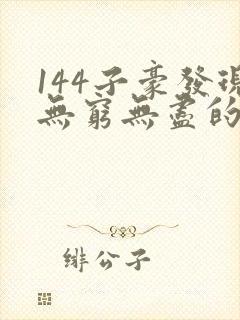 144子豪發現
無窮無盡的
緋公子